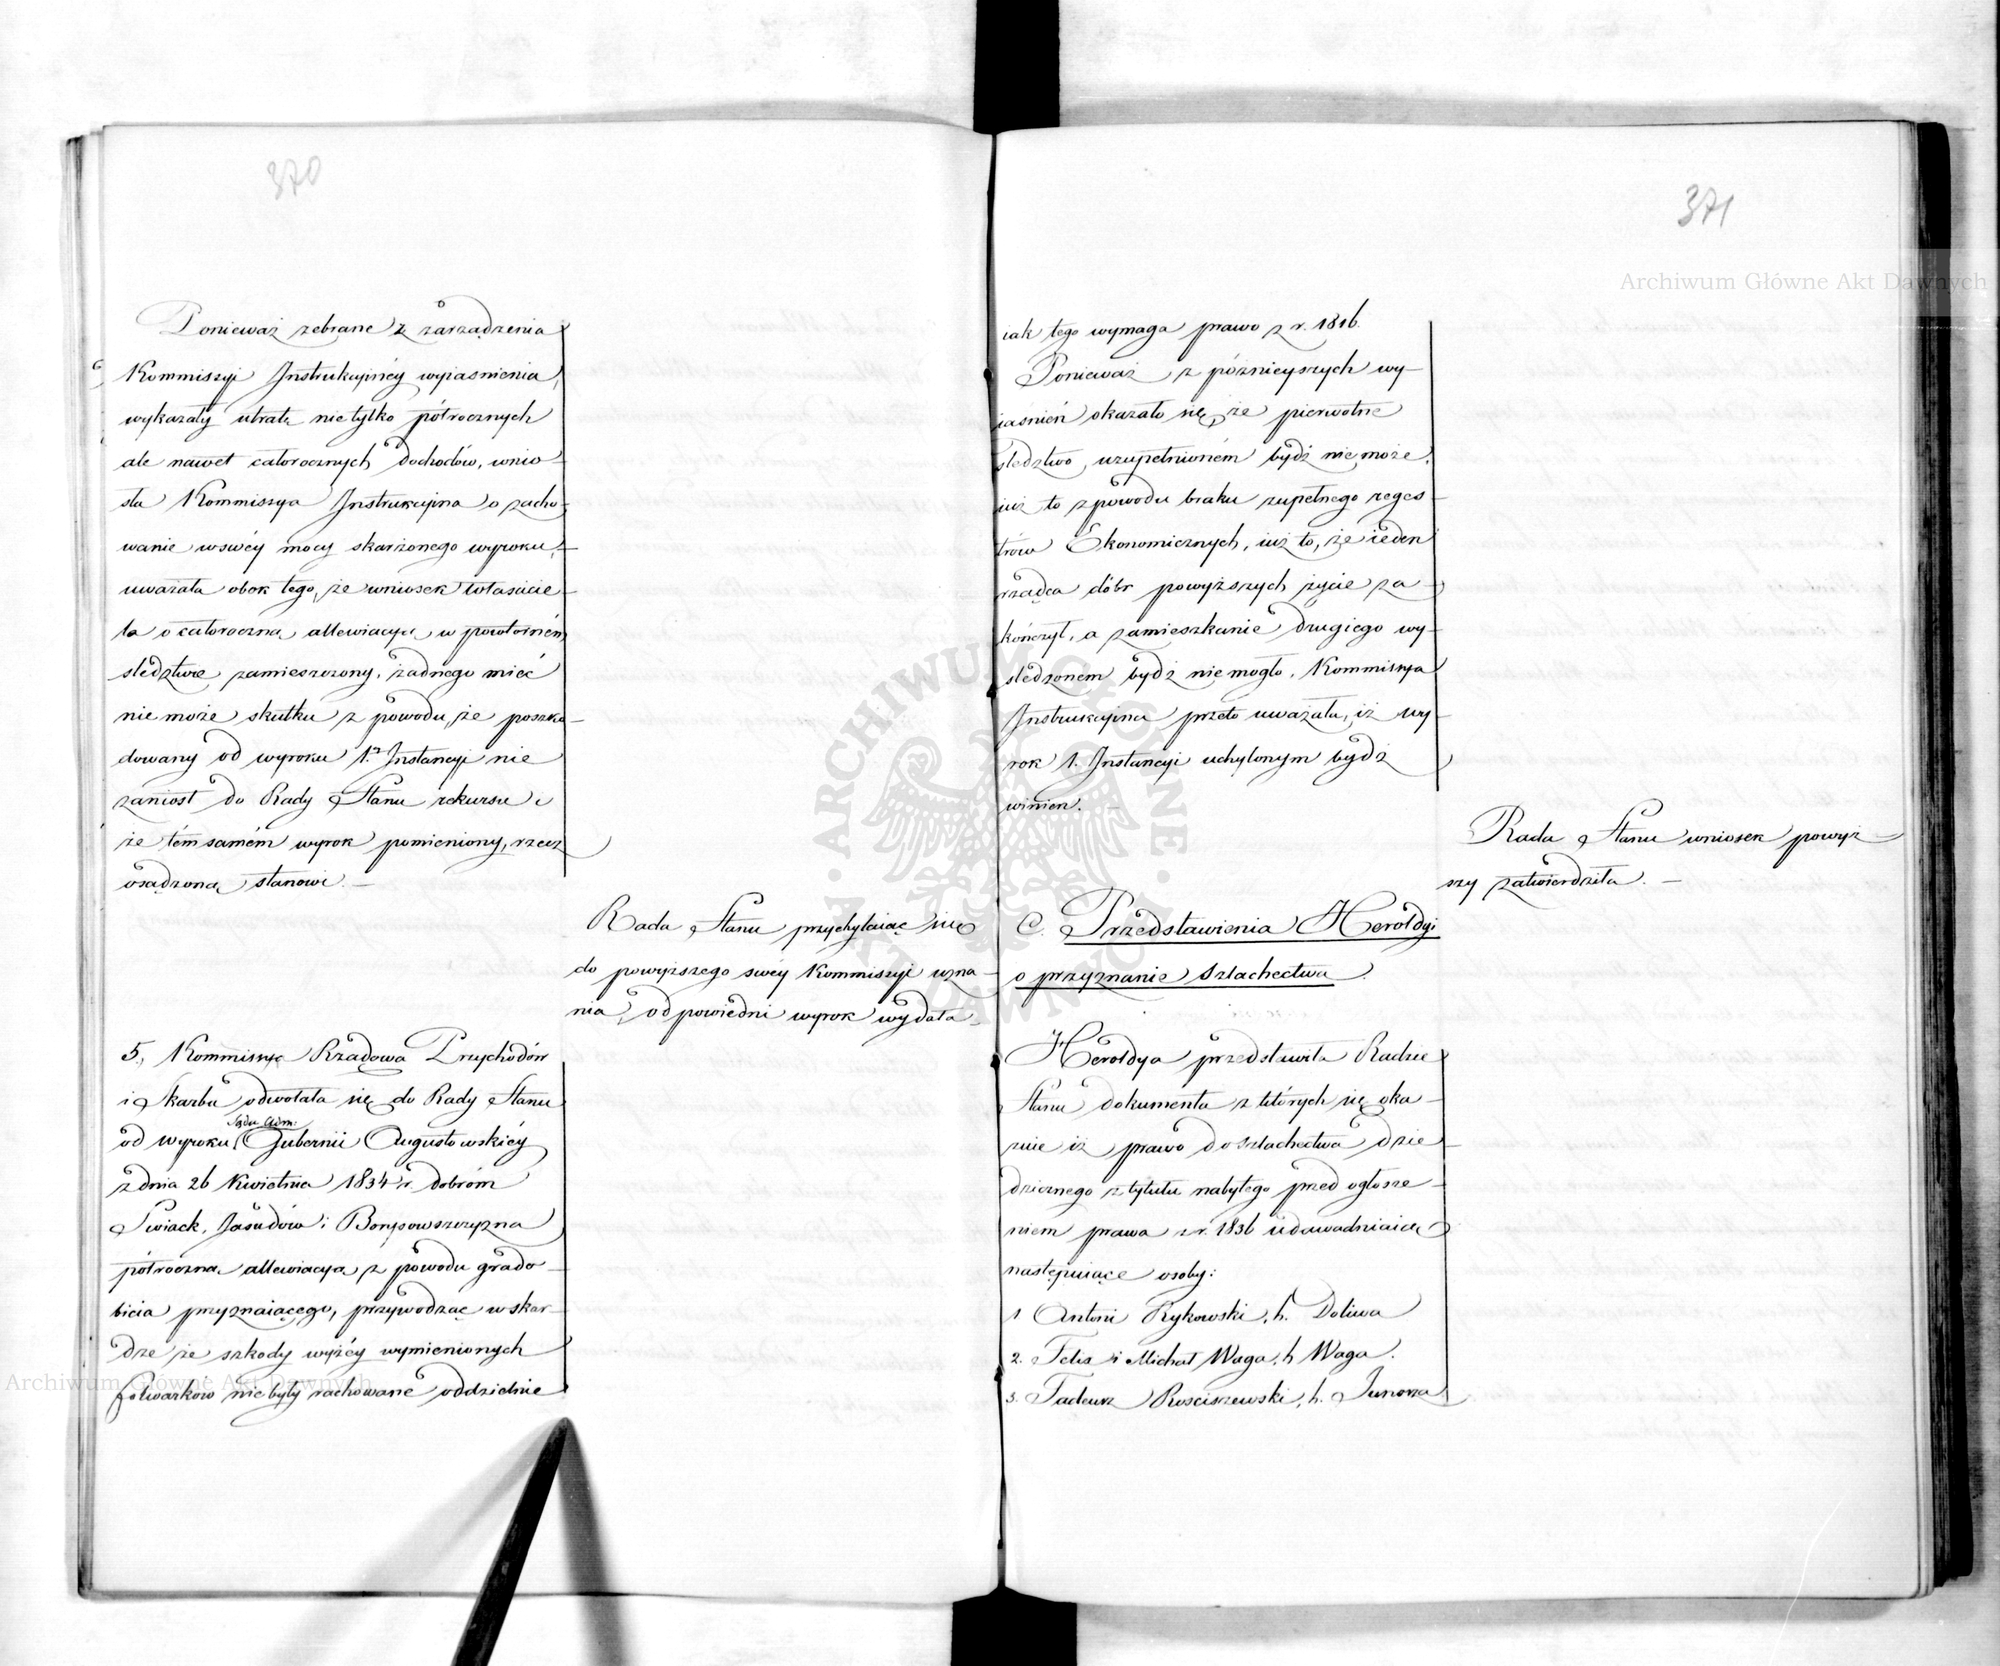 370
Ponieważ zebrane z zarządzenia
Kommissyi Instrukcyinéy wyiasnienia,
wykazały utratę nie tylko półrocznych
ale nawet całorocznych dochodów, wnio-
sła Kommissya Instrukcyina o zacho-
wanie w swéy mocy skarżonego wyroku,
uważała obok tego, że wniosek właścicie-
la o całoroczną allewiacyą w powtórném
śledztwie zamieszczony, żadnego mieć
nie może skutku z powodu, że poszko-
dowany od wyroku 1. Instancyi nie
zaniósł do Rady Stanu rekursu i
że tém samém wyrok pomieniony, rzecz
osądzoną stanowi. —
Rada Stanu przychylaiąc się
do powyższego swéy Kommissyi uzna-
nia, odpowiedni wyrok wydała
5., Kommissya Rządowa Przychodów
i Skarbu odwołała się do Rady Stanu
Sądu Adm:
od wyroku Gubernii Augustowskiéy
z dnia 26 Kwietnia 1834 r. dobróm
Swiack, Jasudów i Borysowszczyzna
półroczną allewiacyą z powodu grado-
bicia przyznaiącego, przywodząc w skar-
dze że szkody wyżéy wymienionych
folwarków nie były rachowane oddzielnie
371
iak tego wymaga prawo z r. 1816.
Ponieważ z późnieyszych wy-
iaśnień okazało się, że pierwotne
śledztwo, uzupełnioném bydź nie może,
iuż to z powodu braku zupełnego reges-
trów Ekonomicznych, iuż to, że ieden
rządca dóbr powyższych życie za-
kończył, a zamieszkanie drugiego wy-
śledzonem bydź nie mogło, Kommissya
Instrukcyina przeto uważała, iż wy-
rok 1. Instancyi uchylonym bydź
winien. —
Rada Stanu wniosek powyż-
szy zatwierdziła. —
C. Przedstawienia Heroldyi
o przyznanie Szlachectwa.
Heroldya przedstawiła Radzie
Stanu dokumenta z których się oka-
zuie iż prawo do Szlachectwa dzie-
dzicznego z tytułu nabytego przed ogłosze-
niem prawa z r. 1836 udowadniaią
następuiące osoby:
1 Antoni Rykowski, h. Doliwa
2. Felix i Michał Waga, h Waga.
3. Tadeusz Rosciszewski, h. Junosza
Archiwum Główne Akt Dawnych
Archiwum Główne Akt Dawnych
ARCHIWUM GŁÓWNE AKT DAWNYCH